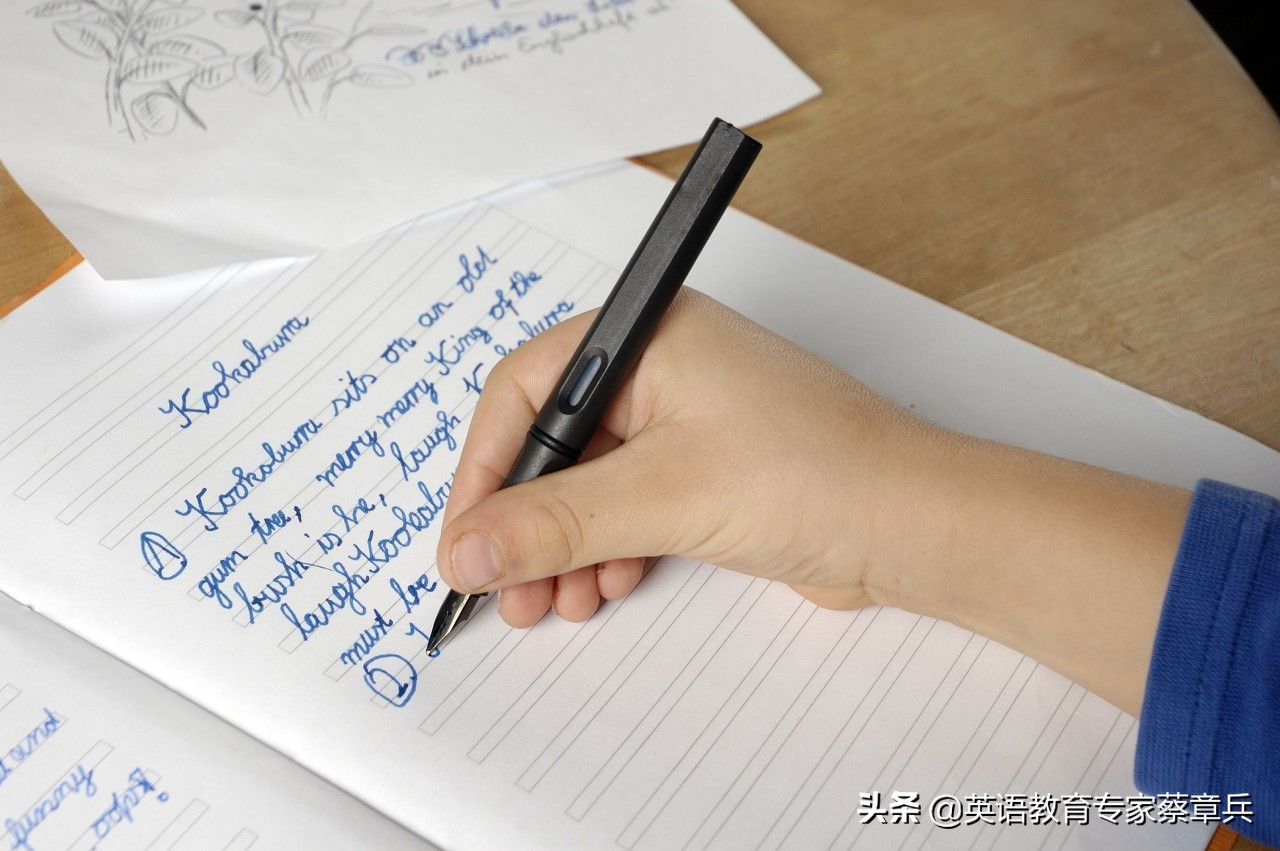 in dein Englischheft ab!
Kookaburra
① Kookaburra sits on an old
gum tree, merry merry King of the
brush is he, laugh K
laugh Kookabu
must be
②
and
funny
头条 @英语教育专家蔡章兵